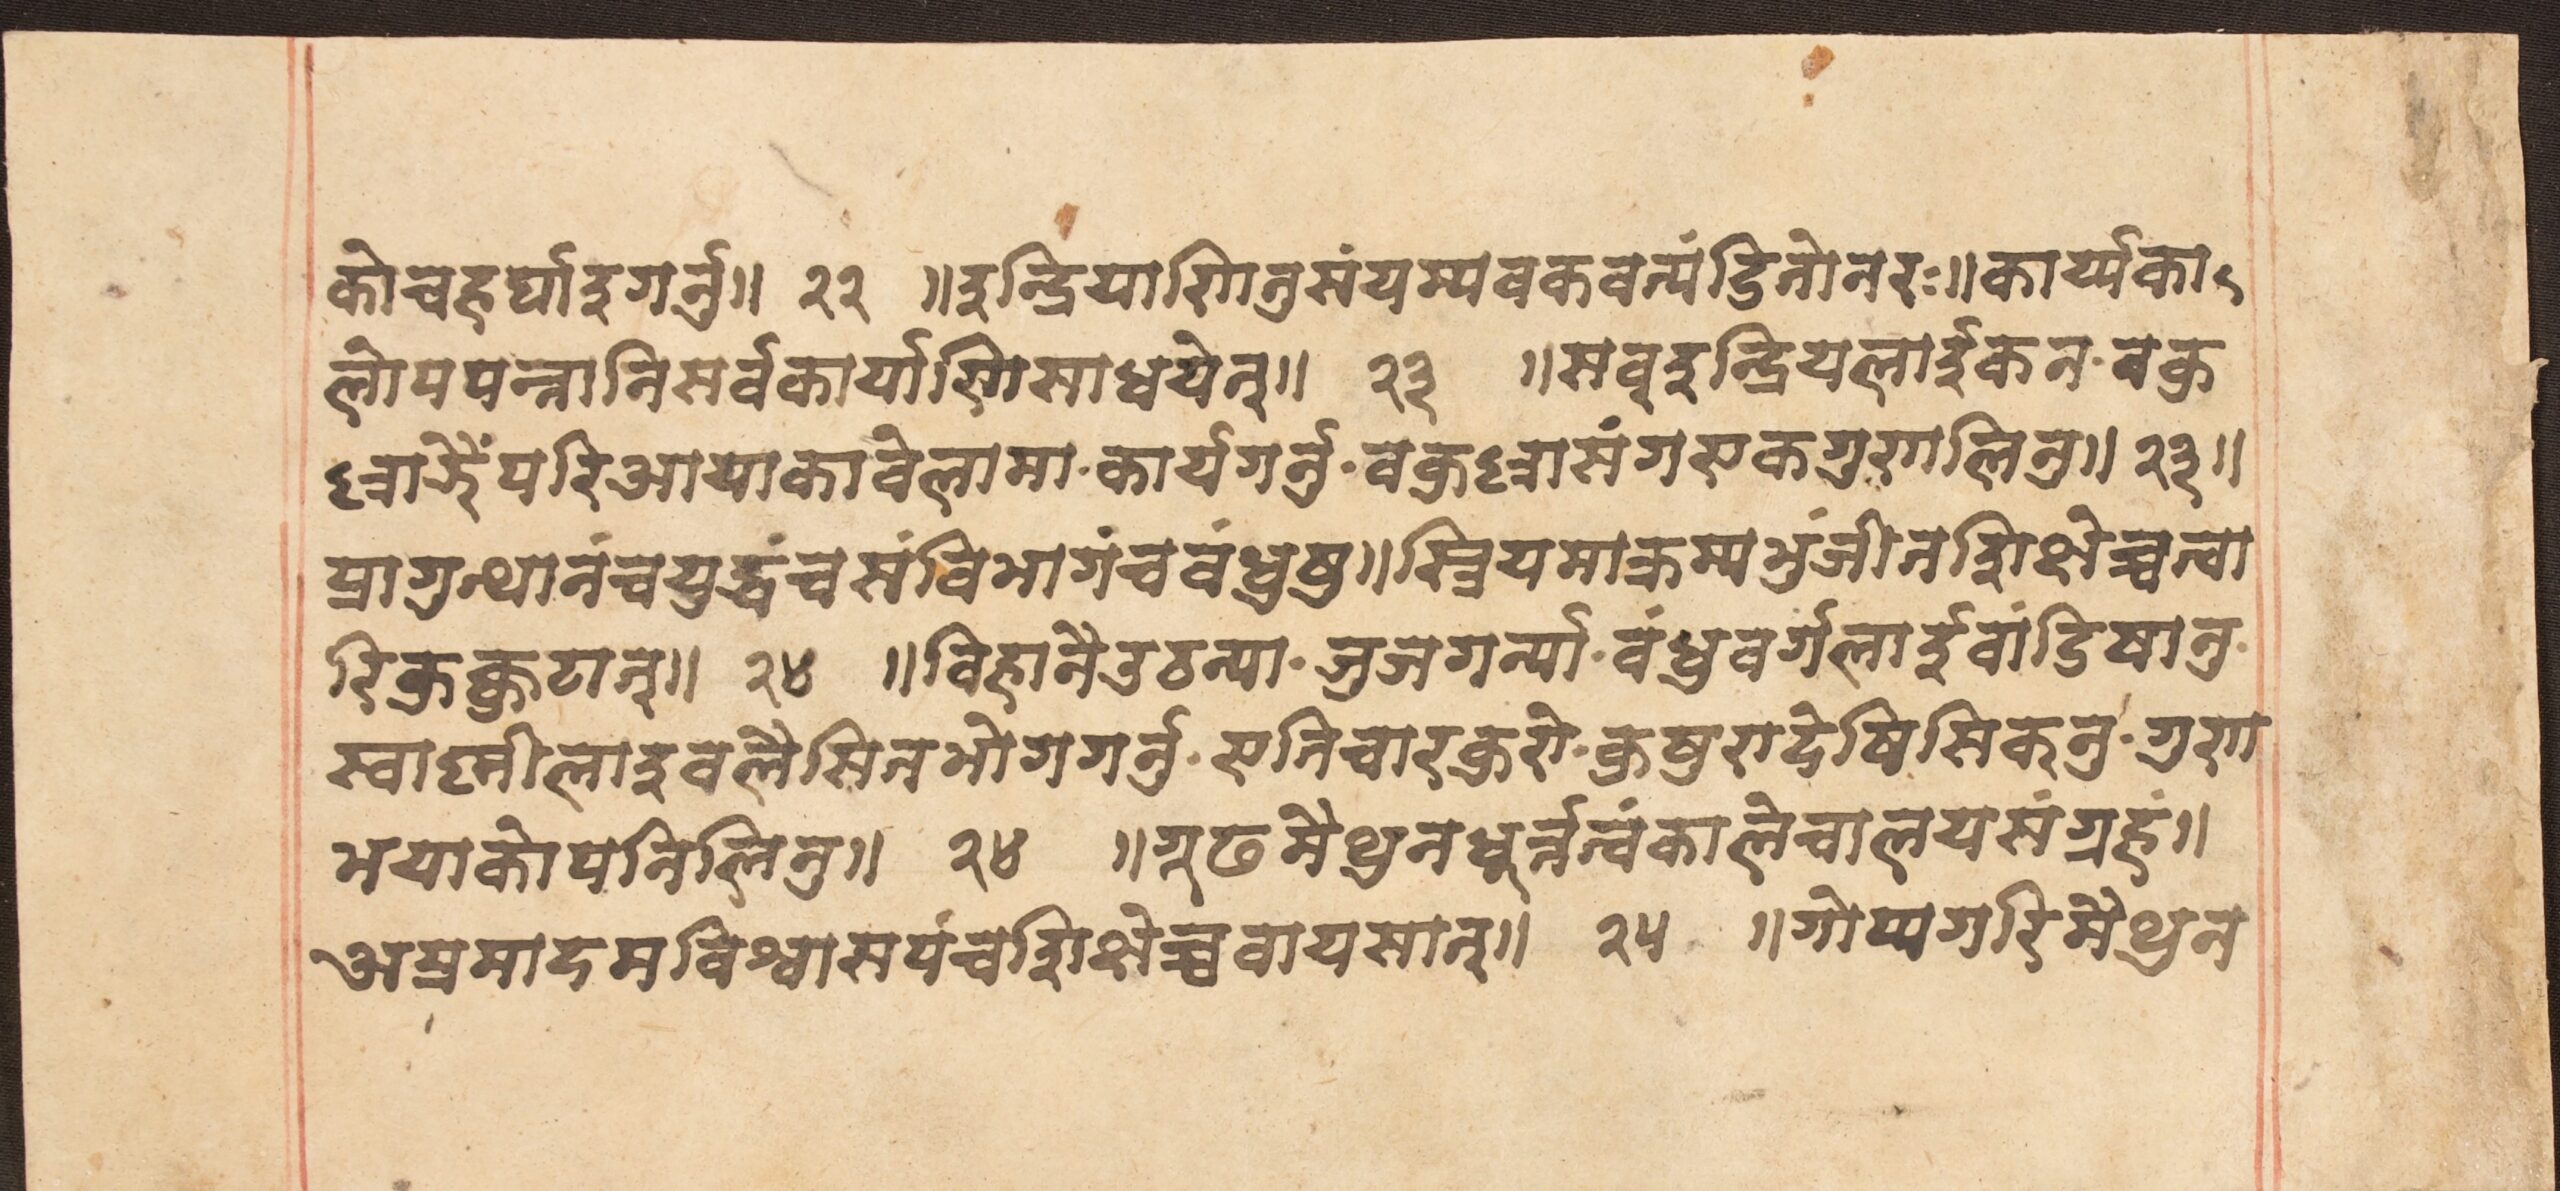 कोचहर्घ्याइगर्नु॥ २२ ॥इन्द्रियाणितुसंयम्यवकवत्पंडितोनरः॥कार्य्यका
लोपपन्नानिसर्वकार्याणिसाधयेत्॥ २३ ॥सव्इन्द्रियलाईकन·वकु
ह्लाझैंपरिआयाकावेलामा·कार्यगर्नु·वकुह्लासंगएकगुणलिनु॥२३॥
प्रागुत्थानंचयुद्धंचसंविभागंचवंधुषु॥स्त्रियमाक्रम्यभुंजीतशिक्षेच्चत्वा
रिकुक्कुटात्॥ २४ ॥विहानैउठन्या·जुजगर्न्या·वंधुवर्गलाईवांडिषानु·
स्वाह्नीलाइवलैसितभोगगर्नु·एतिचारकुरो·कुषुरादेषिसिक्नु·गुण
भयाकोपनिलिनु॥ २४ ॥गूढमैथुनधूर्त्तत्वंकालेचालयसंग्रहं॥
अप्रमादमविश्वासपंचशिक्षेच्चवायसात्॥ २५ ॥गोप्यगरिमैथुन